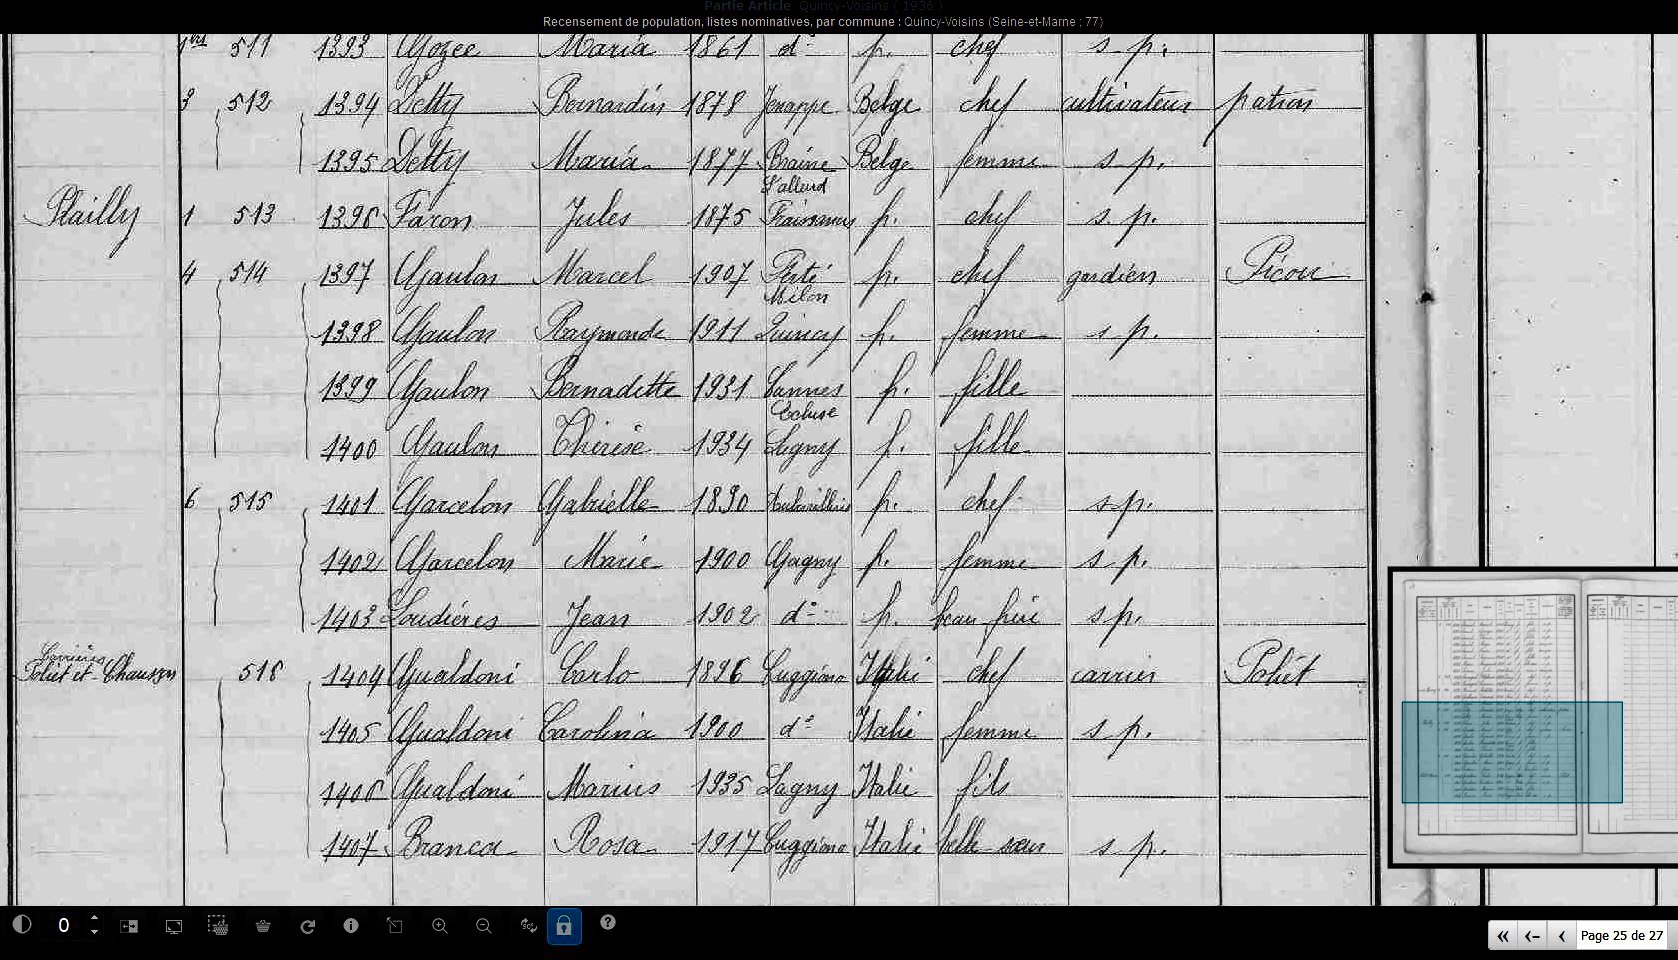 Partie Article Quincy-Voisins ( 1936 )
Recensement de population, listes nominatives, par commune : Quincy-Voisins (Seine-et-Marne ; 77)
1bis 511 1393 Gozee Maria 1861 d° f. chef s. p.
3 512 1394 Detty Bernardin 1878 Jenappe Belge chef cultivateur patron
1395 Detty Maria 1877 Braine Belge femme s. p.
L'alleud
Plailly 1 513 1396 Faron Jules 1875 f. chef s. p.
4 514 1397 Gaulon Marcel 1907 Ferté f. chef gardien Picou
Milon
1398 Gaulon Raymonde 1911 Quincy f. femme s. p.
1399 Gaulon Bernadette 1931 Cannes f. fille
Ecluse
1400 Gaulon Thérèse 1934 Lagny f. fille
6 515 1401 Garcelon Gabrielle 1890 Aubervilliers f. chef s. p.
1402 Garcelon Marie 1900 Gagny f. femme s. p.
1403 Loudières Jean 1902 d° f. beau frère s. p.
Carrières
Poliet et Chausson 516 1404 Gualdoni Carlo 1896 Cuggiono Italie chef carrier Poliet
1405 Gualdoni Carolina 1900 d° Italie femme s. p.
1406 Gualdoni Marius 1935 Lagny Italie fils
1407 Branca Rosa 1917 Cuggiono Italie belle sœur s. p.
0
Page 25 de 27